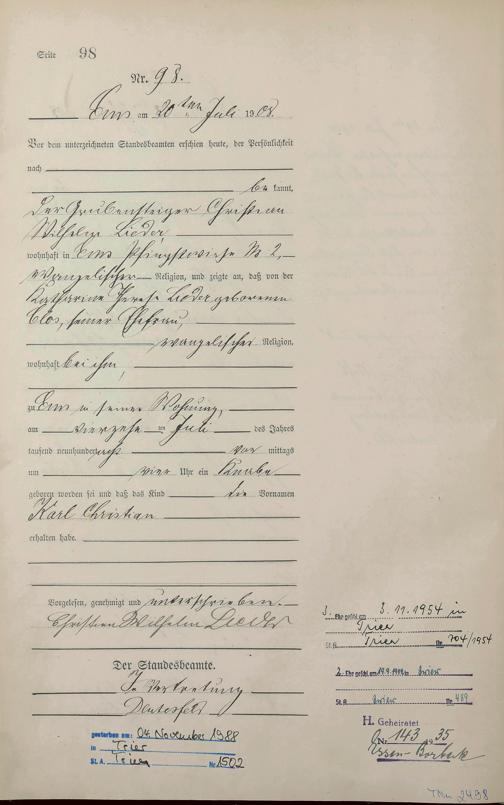 Seite 98
Nr. 98.
Ems am 20ten Juli 1908.
Vor dem unterzeichneten Standesbeamten erschien heute, der Persönlichkeit
nach
be kannt,
der Grubensteiger Christian
Wilhelm Lieder
wohnhaft in Ems Pfingstwiese No 2,
evangelischer Religion, und zeigte an, daß von der
Katharine Therese Lieder geborenen
Clos, seiner Ehefrau,
evangelischer Religion,
wohnhaft bei ihm,
zu Ems in seiner Wohnung,
am vierzehn ten Juli des Jahres
tausend neunhundert acht vor mittags
um vier Uhr ein Knabe
geboren worden sei und daß das Kind die Vornamen
Karl Christian
erhalten habe.
Vorgelesen, genehmigt und unterschrieben.
Christian Wilhelm Lieder
Der Standesbeamte.
In Vertretung
gestorben am: 04. November 1988
in Trier
St. A. Trier Nr. 1502
3. Ehe geschl. am 3.11.1954 in
Trier
St. A. Trier Nr. 704/1954
2. Ehe geschl. am in Trier
St. A. Trier Nr. 489
H. Geheiratet
Nr. 143 1935
Essen-Borbeck